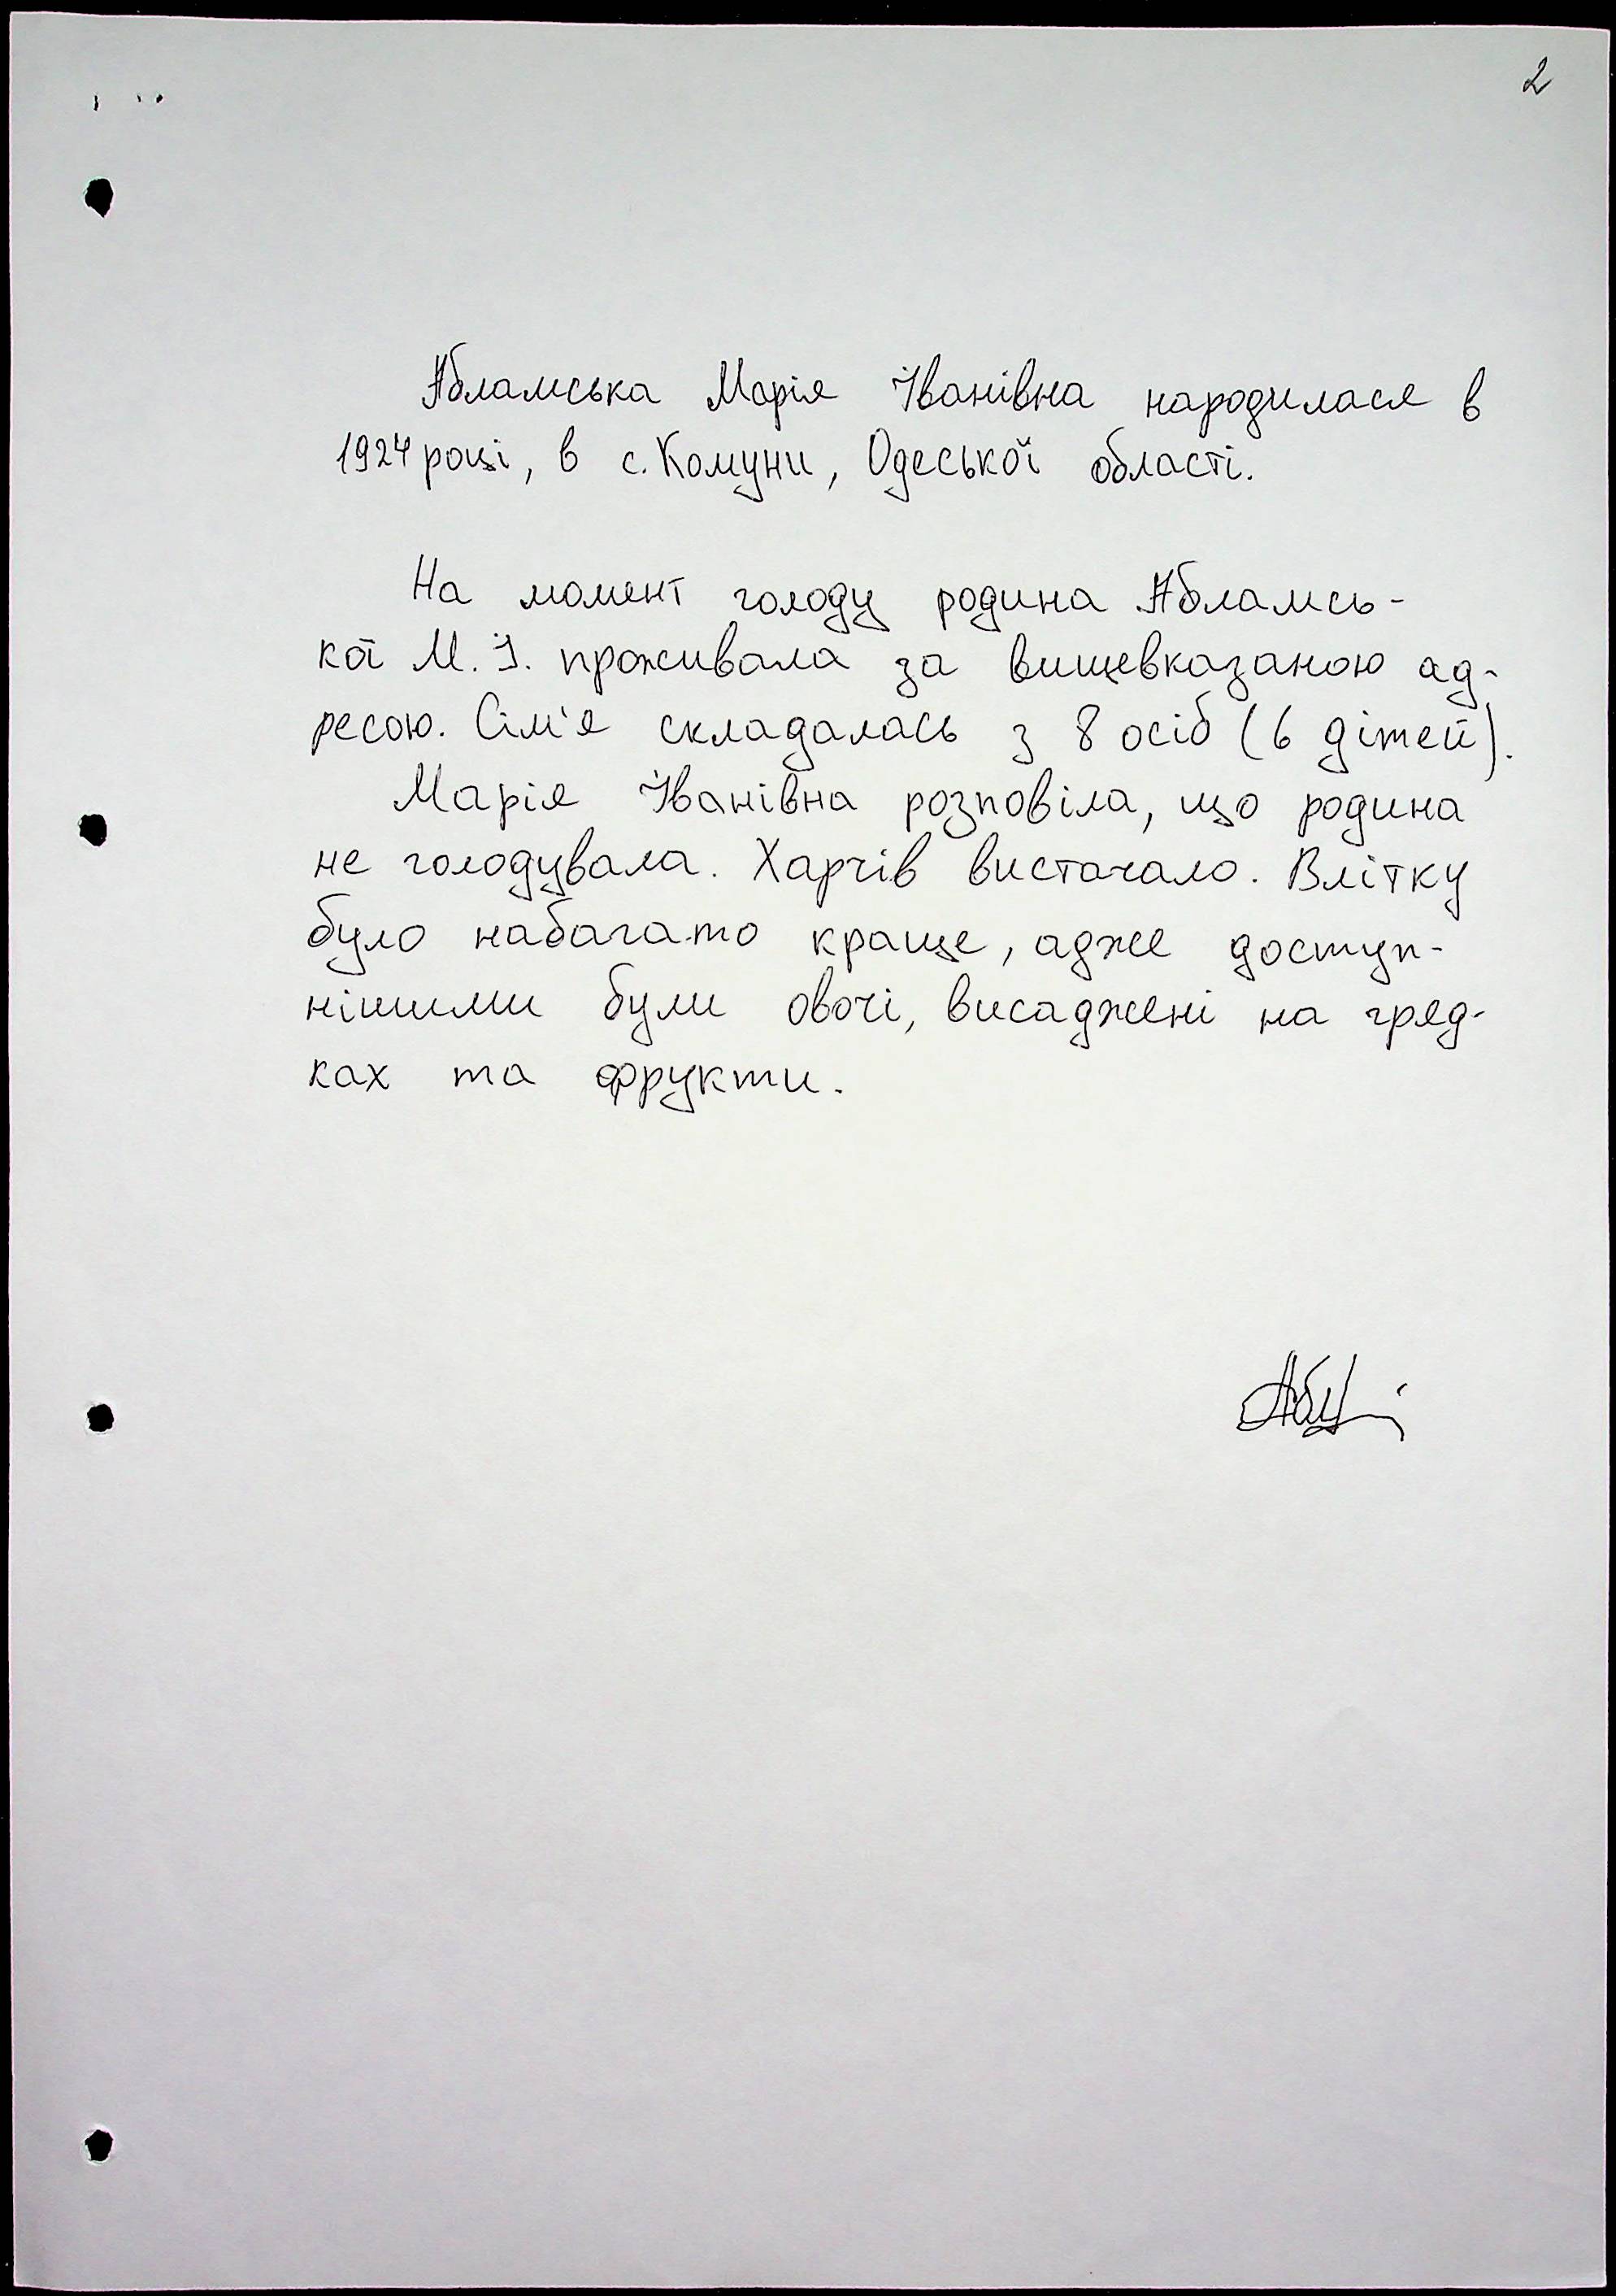 2
Абламська Марія Іванівна народилася в
1924 році, в с. Комуни, Одеської області.
На момент голоду родина Абламсь-
кої М. І. проживала за вищевказаною ад-
ресою. Сім'я складалась з 8 осіб (6 дітей).
Марія Іванівна розповіла, що родина
не голодувала. Харчів вистачало. Влітку
було набагато краще, адже доступ-
нішими були овочі, висаджені на гряд-
ках та фрукти.